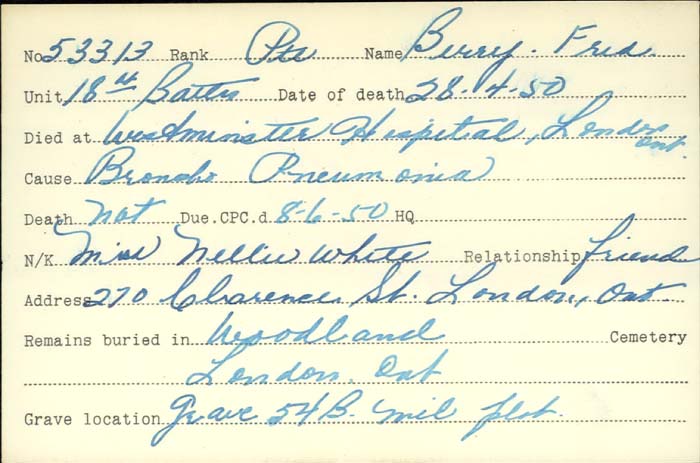 No 53313 Rank Pte Name Berry. Fred.
Unit 18th Battn Date of death 28-4-50
Died at Westminster Hospital, London Ont.
Cause Broncho Pneumonia
Death Not Due. CPC.d 8-6-50 HQ
N/K Miss Nellie White Relationship friend
Address 270 Clarence St. London, Ont.
Remains buried in Woodland Cemetery
London. Ont
Grave location Grave 54 B. mil plot.